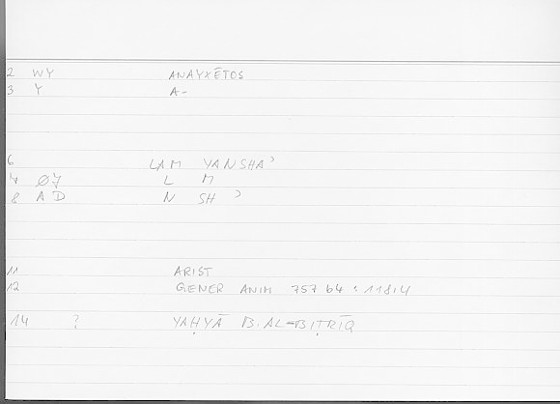 2 WY ANAYXĒTOS
3 Y A-
6 LAM YANSHAʾ
4 ØJ L M
8 A D N SH ʾ
11 ARIST
12 GENER ANIM 757 b4 : 118,4
14 ? YAḤYĀ B. AL-BIṬRĪQ